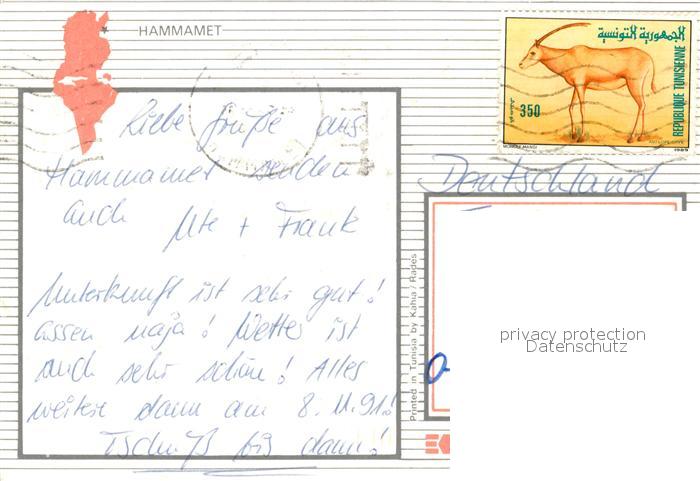 HAMMAMET
الجمهورية التونسية
REPUBLIQUE TUNISIENNE
350
1989
Liebe Grüße aus
Hammamet senden
auch Ute + Frank
Unterkunft ist sehr gut!
assen naja! Wetter ist
auch sehr schön! Alles
weitere dann am 8.11.91!
Tschüß bis dann!
Deutschland
Printed in Tunisia by Kahia / Rades
privacy protection
Datenschutz